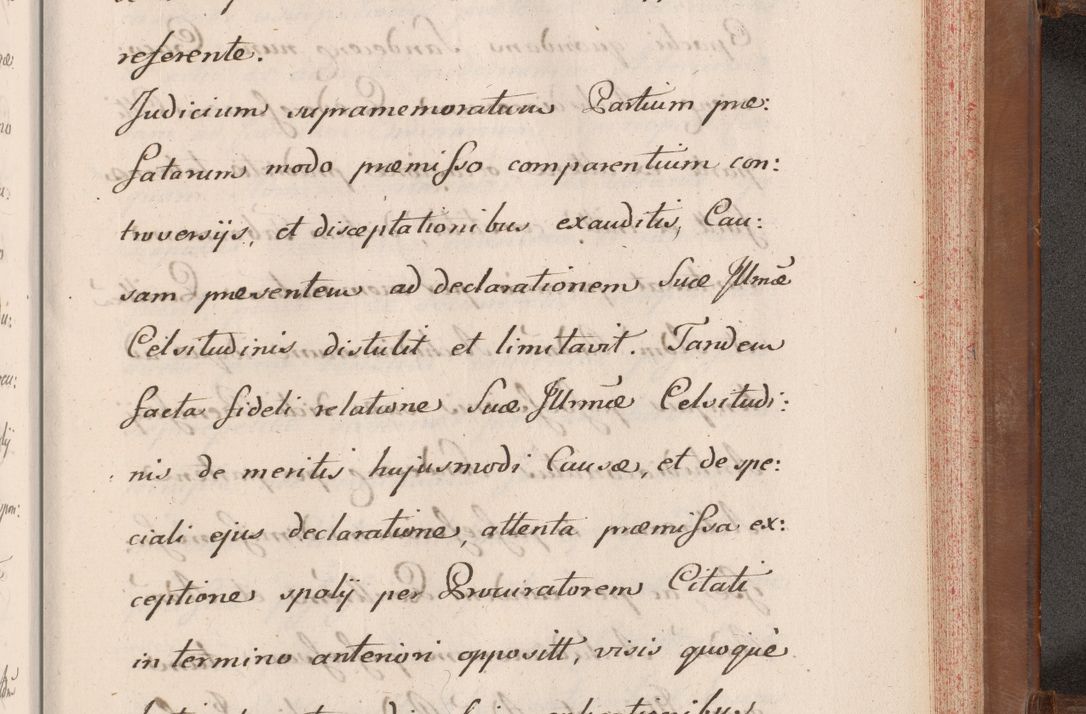 referente.
Judicium supramemoratum Partium præ:
fatarum modo præmisso comparentium con:
troversijs, et disceptationibus exauditis, Cau:
sam præsentem ad declarationem Suæ Illmæ
Celsitudinis distulit et limitavit. Tandem
facta fideli relatione Suæ Illrmæ Celsitudi:
nis de meritis hujusmodi Causæ, et de spe:
ciali ejus declaratione, attenta præmissa ex:
ceptione spolij per Procuratorem Citati
in termino anteriori opposită, visis quoquè